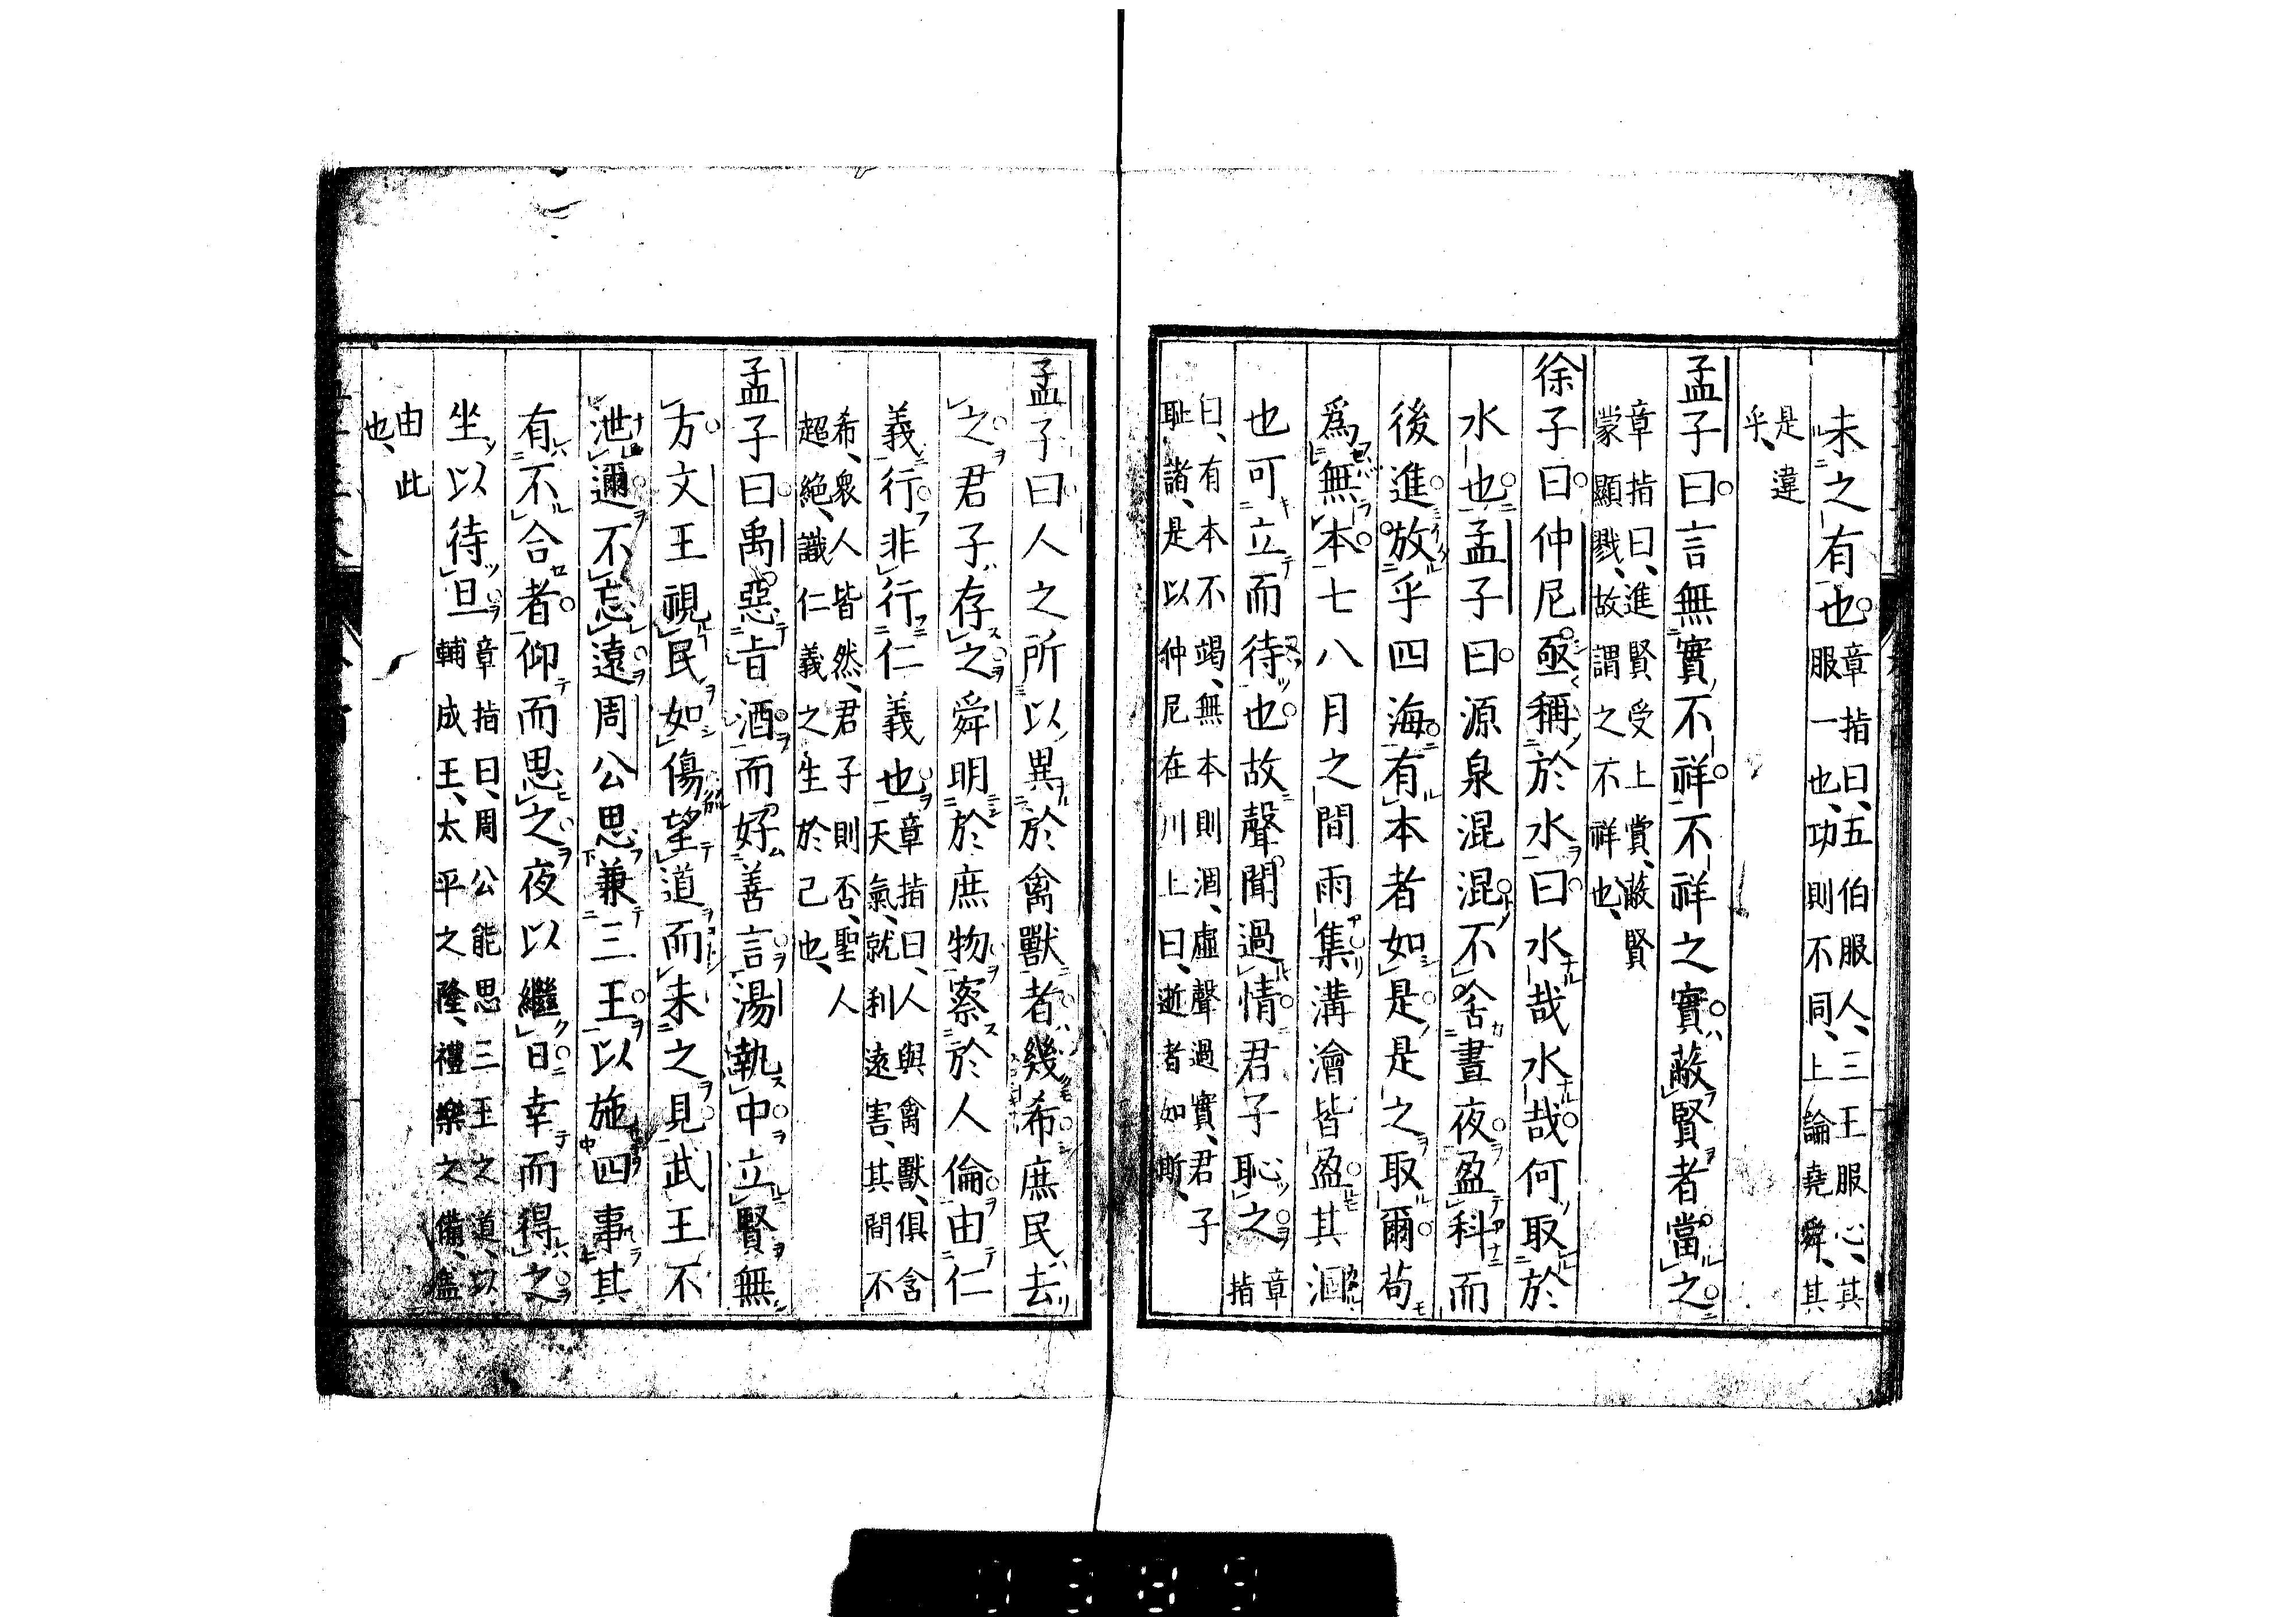 未之有也章指曰、五伯服人、三王服心、其
服一也、功則不同、上論堯舜、其
是違
乎、
孟子曰言無實不祥不祥之實蔽賢者當之
章指曰、進賢受上賞、蔽賢
蒙顯戮、故謂之不祥也、
徐子曰仲尼亟稱於水曰水哉水哉何取於
水也孟子曰源泉混混不舍晝夜盈科而
後進放乎四海有本者如是是之取爾苟
爲無本七八月之間雨集溝澮皆盈其涸
也可立而待也故聲聞過情君子恥之章
指
曰、有本不竭、無本則涸、虛聲過實、君子
恥諸、是以仲尼在川上曰、逝者如斯、
孟子曰人之所以異於禽獸者幾希庶民去
之君子存之舜明於庶物察於人倫由仁
義行非行仁義也章指曰、人與禽獸、俱含
天氣、就利遠害、其間不
希、衆人皆然、君子則否、聖人
超絕、識仁義之生於己也、
孟子曰禹惡旨酒而好善言湯執中立賢無
方文王視民如傷望道而未之見武王不
泄邇不忘遠周公思兼三王以施四事其
有不合者仰而思之夜以繼日幸而得之
坐以待旦章指曰、周公能思三王之道、以
輔成王、太平之隆、禮樂之備、蓋
由此
也、